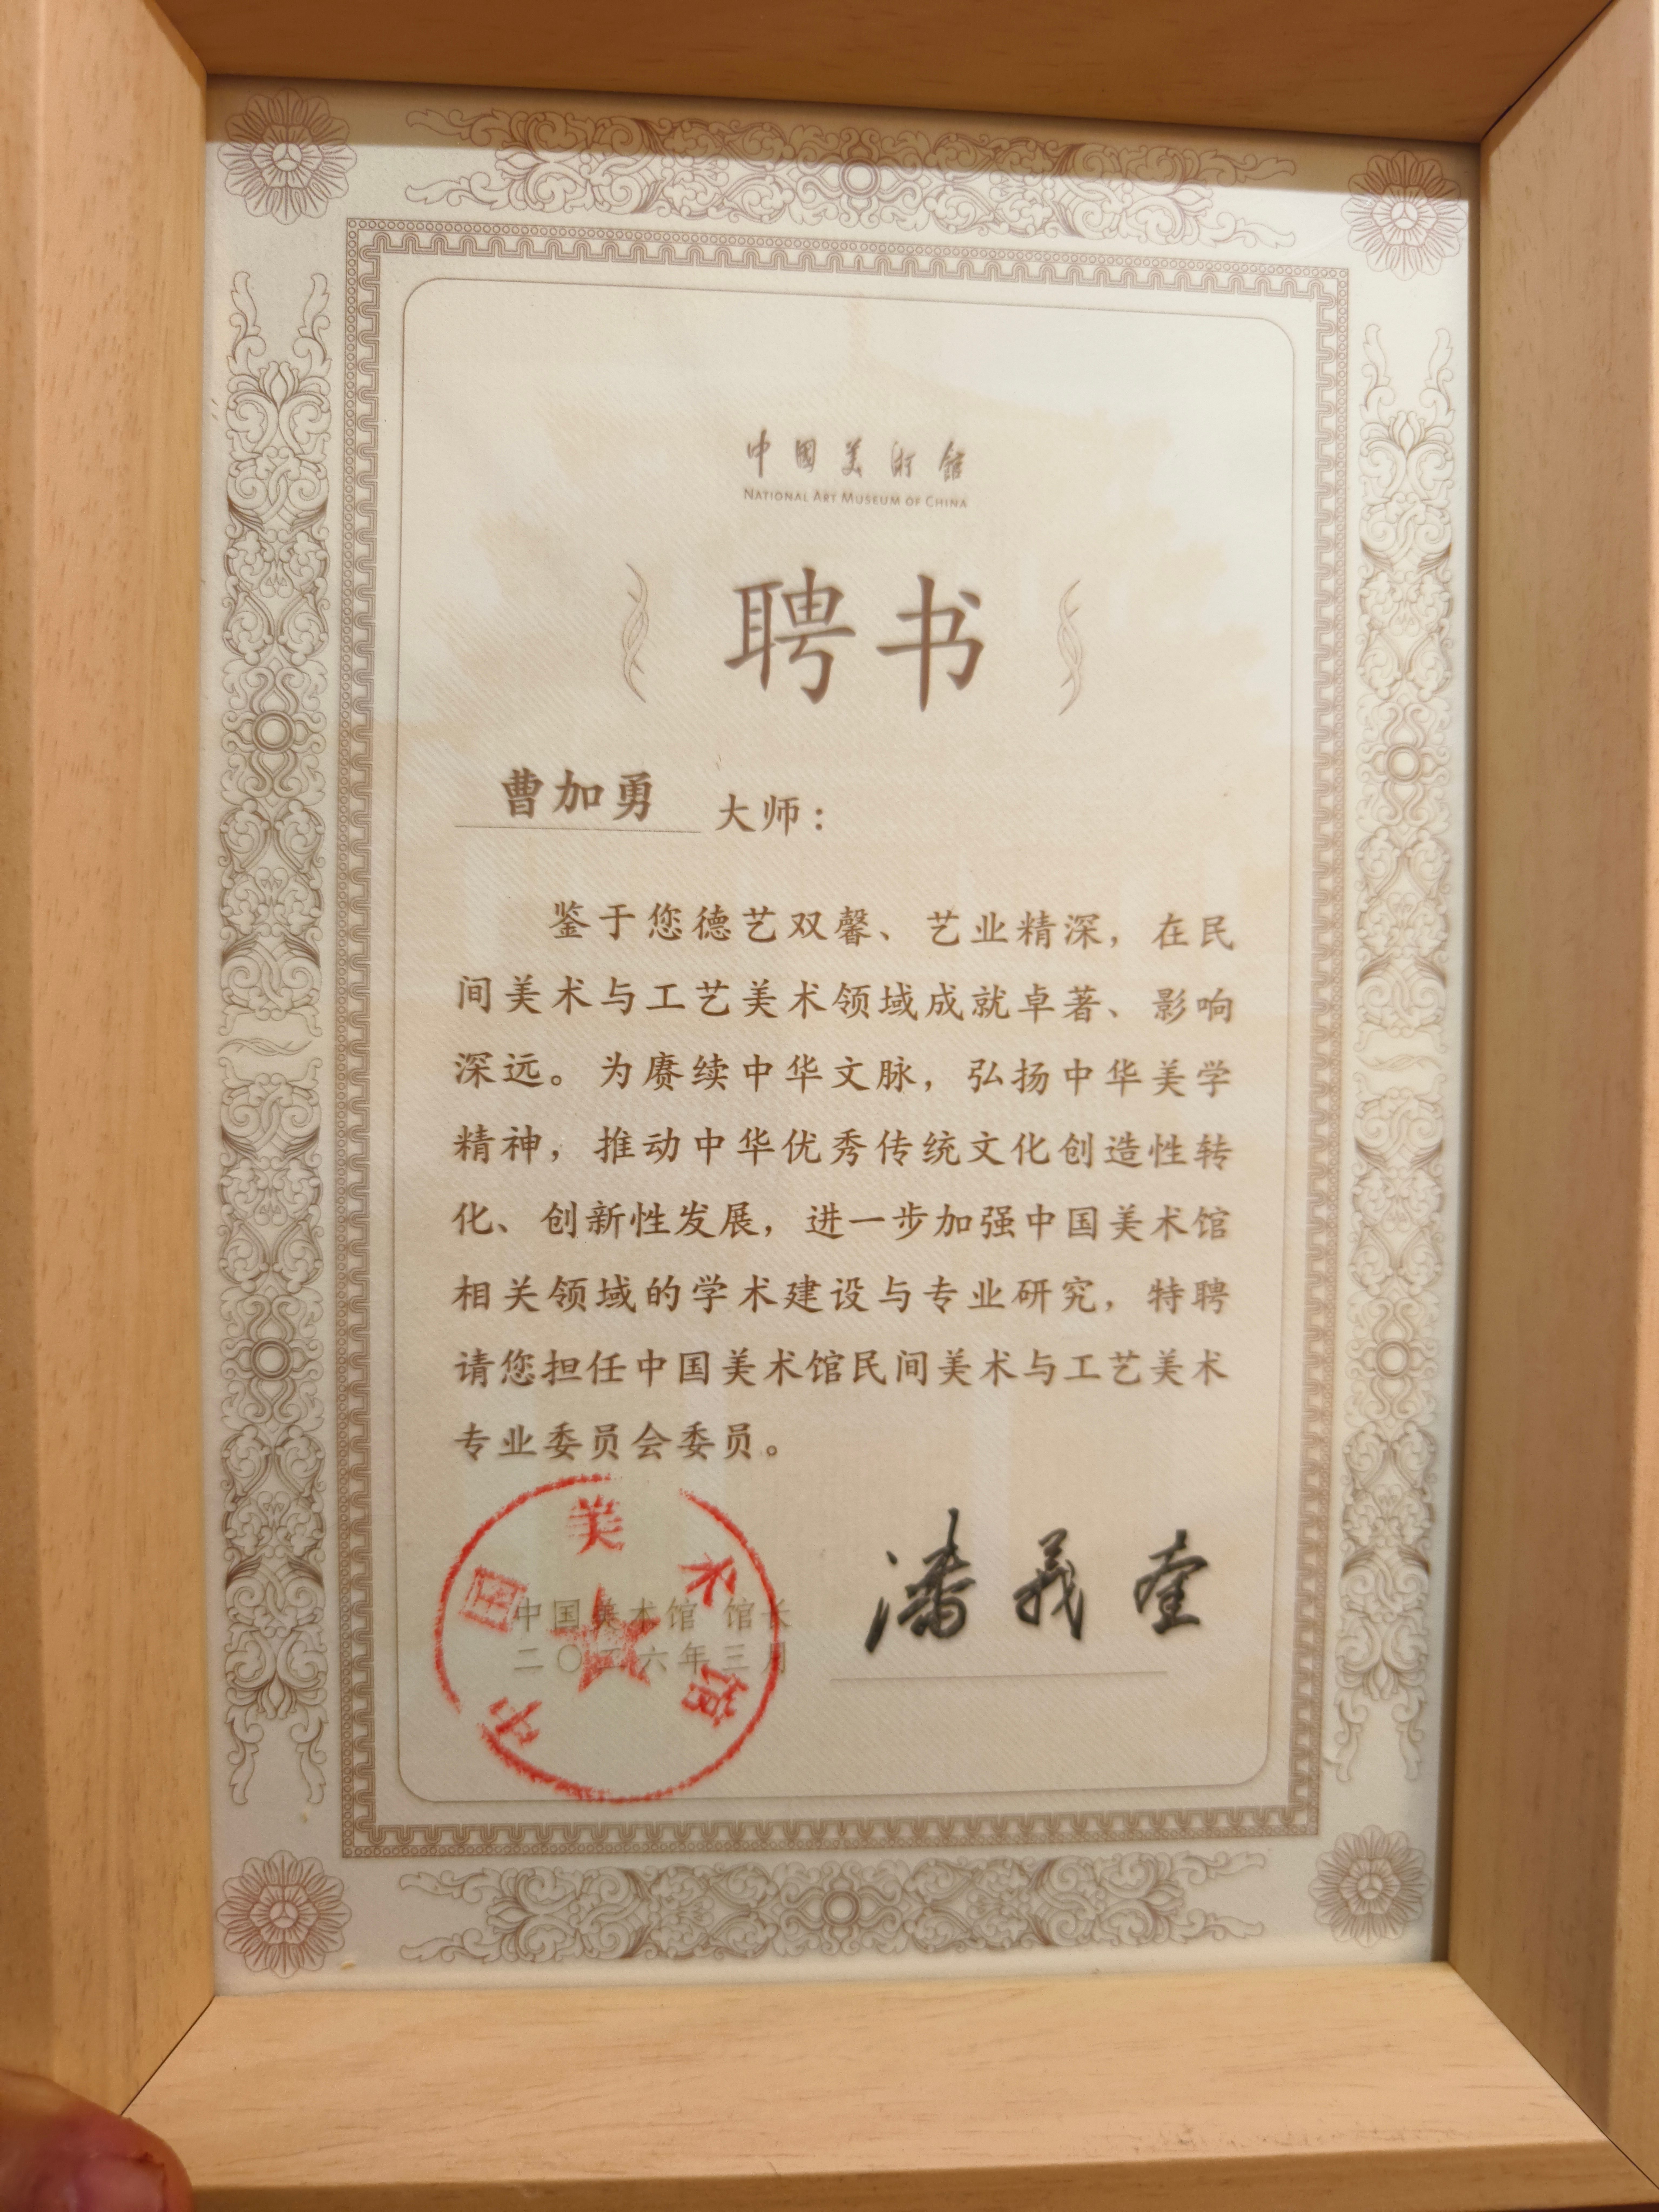 中国美術馆
NATIONAL ART MUSEUM OF CHINA
聘书
曹加勇 大师：
鉴于您德艺双馨、艺业精深，在民
间美术与工艺美术领域成就卓著、影响
深远。为赓续中华文脉，弘扬中华美学
精神，推动中华优秀传统文化创造性转
化、创新性发展，进一步加强中国美术馆
相关领域的学术建设与专业研究，特聘
请您担任中国美术馆民间美术与工艺美术
专业委员会委员。
中国美术馆 馆长
二〇二六年三月
潘義奎
中国美术馆